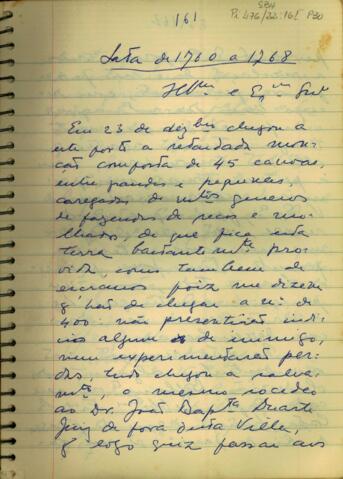 161
SBH
Pi 476/22:161 P30
Lata de 1760 a 1768
Illmo e Exmo Snr
Em 23 de dezbro chegou a
este porto a retardada mon-
ção composta de 45 canoas,
entre grandes e pequenas,
carregadas de mtos generos
de fazendas de secos e mo-
lhados, de que fica esta
terra bastantemte pro-
vida, como tambem de
escravos pois me dizem
q' hão de chegar a no de
400. não presentirão indi-
cios algum de inimigo,
nem experimentarão per-
das, tudo chegou a salva-
mto, o mesmo socedeo
ao Dr. João Bapta Duarte
Juiz de fora desta Villa,
q' logo quiz passar aos